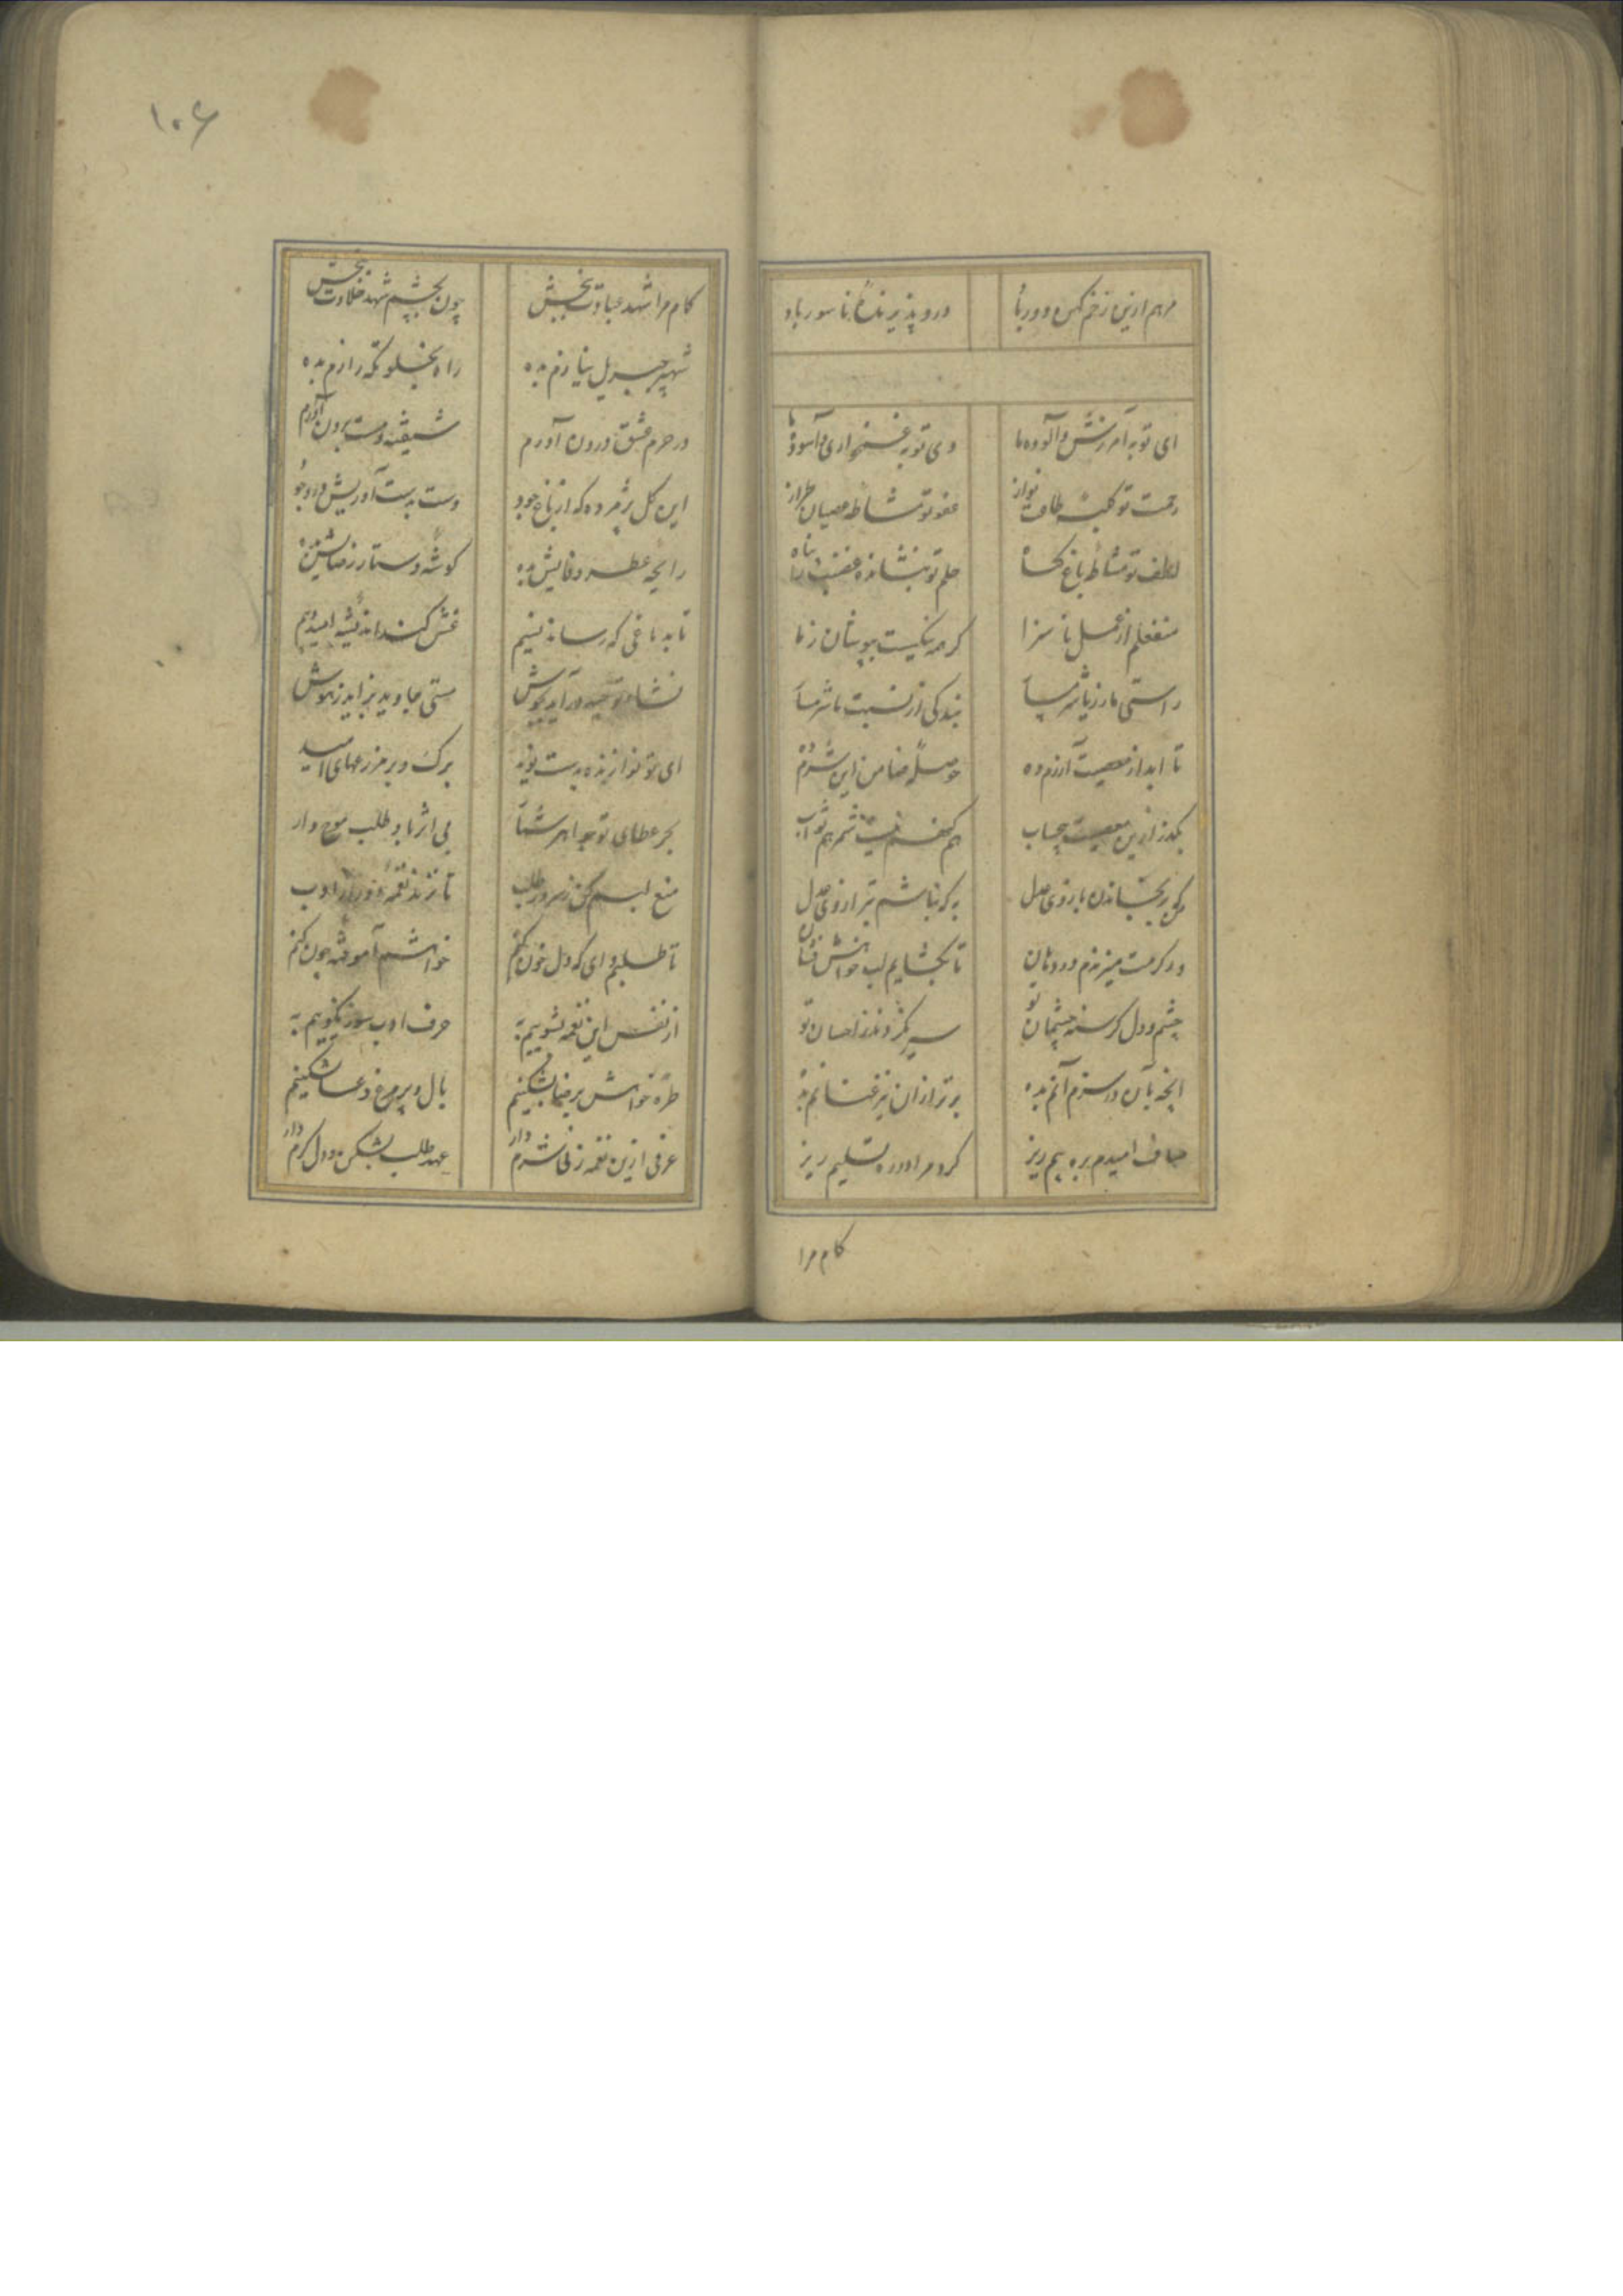 مرهم ازین زخم کهن دور باد درد پذیرنده ناسور باد
ای تو به آمرزش و آلوده ما وی تو به غمخواری و آسوده ما
رحمت تو کعبه طاعت نواز عفو تو مشاطه عصیان طراز
لطف تو مشاطه باغ گناه حلم تو نشانده غضب را
منفعلم از عمل ناسزا گر همه نیکیست بپوشان ز ما
راستی ما ز زیان شرمسار بندگی از نسبت ما شرمسار
تا ابد از معصیت آزرم ده حوصله ضامن این شرم ده
بگذر ازین معصیت بیحساب هم گنهم نیست شمر هم ثواب
بازوی عدل به که نباشم ترازوی عدل
در کرمت میزندم در دهان تا بگشایم لب خواهش فشان
چشم و دل گرسنه چشمان تو سیر نگردند ز احسان تو
آنچه بآن در سزم آنم بده برتر از آن نیز غنانم بده
صاف امیدم بره بیم ریز گرد مرا در ره تسلیم ریز
کام مرا
۱۰۶
کام مرا شهد عبادت ببخش چون بچشم شهد حلاوت ببخش
شهپر جبریل نیازم بده راه بخلوتگه رازم بده
در حرم عشق درون آورم شیفته و مست برون آورم
این گل پژمرده که از باغ جود دست بدست آوریش در وجود
رایحه عطر وفایش بده گوشه دستار رضایش بده
تا بدماغی که رساند نسیم غش کند اندیشه امید و بیم
نشاه توحید درآید بجوش مستی جاوید بزاید ز هوش
ای تو نوازنده بدست نوید برگ و بر مزرعهای امید
بحر عطای تو جواهر نثار بی اثر باد طلب موج دار
منع لبم کن ز سرود طلب تا نزند نغمه ادب
تا طلبم وای که دل خون کنم خواهش آموخته چون کنم
از نفس این نغمه نشوییم به حرف ادب سوز نگوییم به
طره خواهش برضا بشکنیم بال و پر مرغ دعا بشکنیم
عرفی ازین نغمه زنی شرم دار عهد طلب بشکن و دل گرم دار